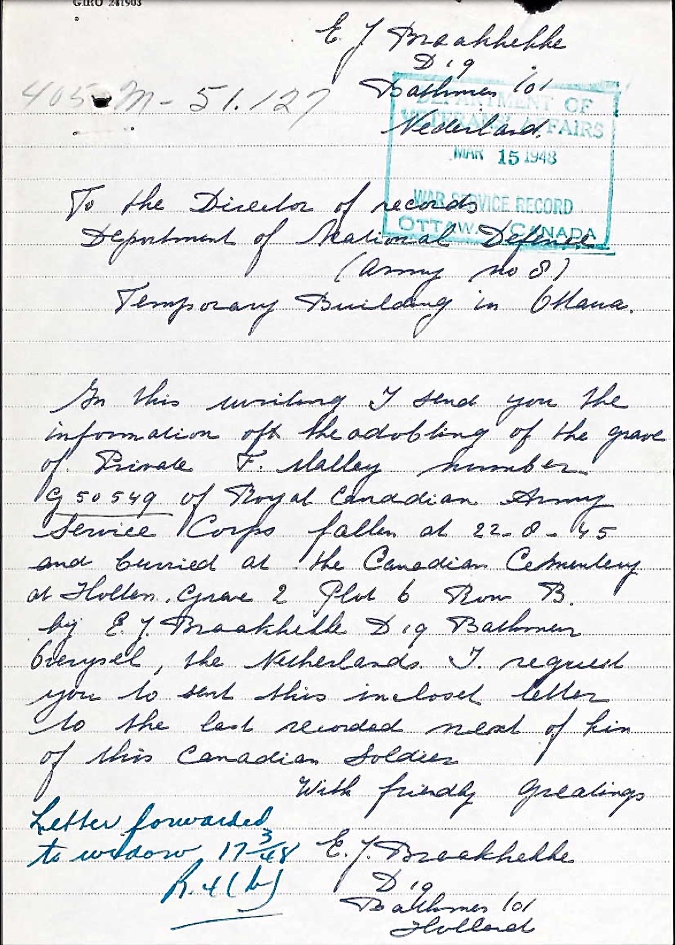 GIRO 241903
E. J. Braakhekke
D 19
Bathmen (o)
Nederland.
405-M-51.127
DEPARTMENT OF
VETERANS AFFAIRS
MAR 15 1948
WAR SERVICE RECORD
OTTAWA CANADA
To the Director of records
Department of National Defence
(Army no 8)
Temporary Building in Ottawa.
In this writing I send you the
information oft the adobling of the grave
of Private F. Malley number
G 50549 of Royal Canadian Army
Service Corps fallen at 22-8-45
and burried at the Canadian Cemutery
at Holten. Grave 2 Plot 6 Row B.
by E. J. Braakhekke D 19 Bathmen
Overysel, the Netherlands. I. request
you to sent this incloset letter
to the last recorded next of kin
of this Canadian Soldier
With friendly greatings
E. J. Braakhekke
D 19
Bathmen (o)
Holland
Letter forwarded
to widow 17 3/48
R.4(b)